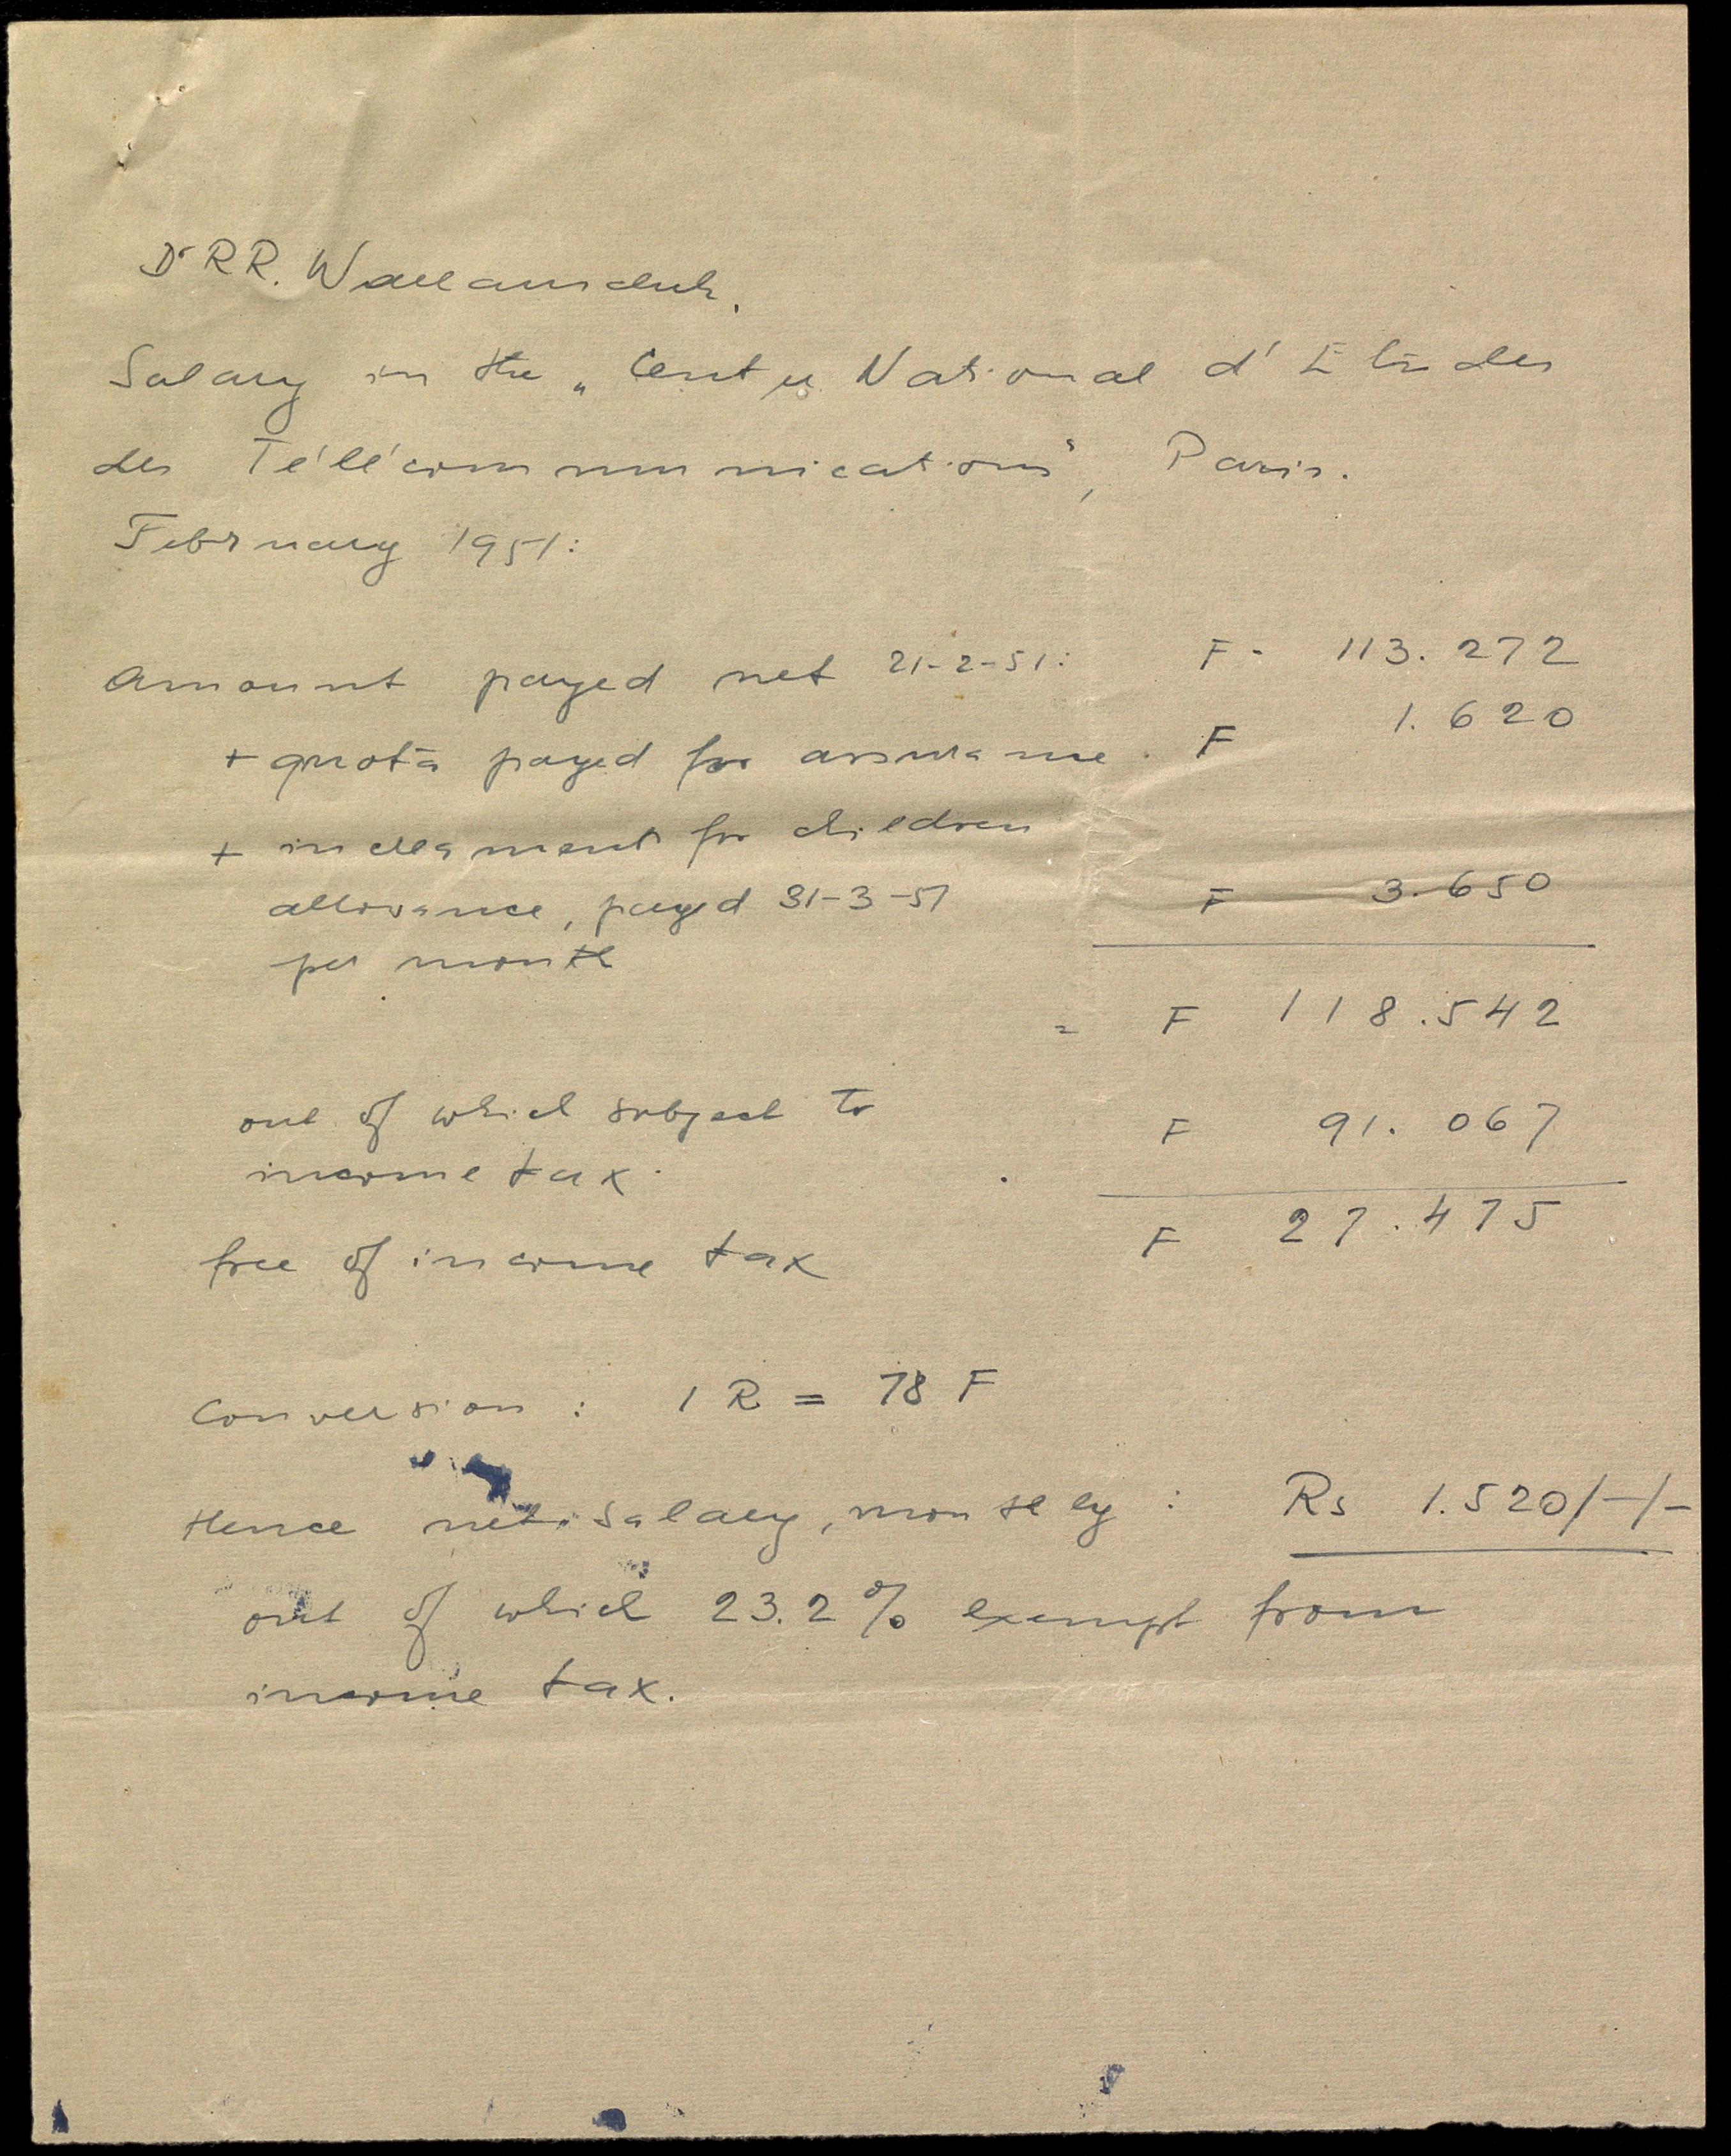 Dr RR. Wallauschek.
Salary in the „Centre National d'Etudes
des Télécommunications", Paris.
February 1951:
Amount payed net 21-2-51: F - 113.272
+ quota payed for assurance. F 1.620
+ increament for children
allowance, payed 31-3-51 F 3.650
per month
= F 118.542
out of which subject to F 91.067
income tax.
free of income tax F 27.475
Conversion : 1 R = 78 F
Hence net salary, monthly : Rs 1.520/-/-
out of which 23.2 % exempt from
income tax.